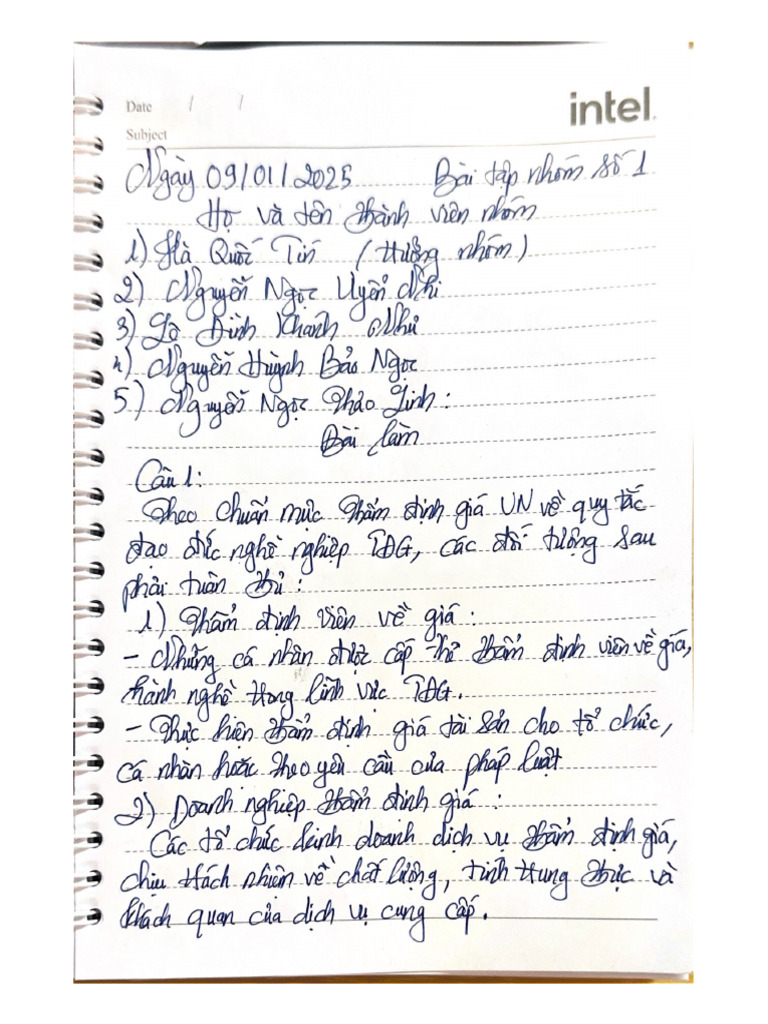 Date / /
intel.
Subject
Ngày 09/01/2025 Bài tập nhóm số 1
Họ và tên thành viên nhóm
1) Hà Quốc Tín (trưởng nhóm)
2) Nguyễn Ngọc Uyển Nhi
3) Lê Đình Khánh Như
4) Nguyễn Huỳnh Bảo Ngọc
5) Nguyễn Ngọc Thảo Linh :
Bài làm
Câu 1:
Theo chuẩn mực thẩm định giá VN về quy tắc
đạo đức nghề nghiệp TĐG, các đối tượng sau
phải tuân thủ :
1) Thẩm định viên về giá :
- Những cá nhân được cấp thẻ thẩm định viên về giá,
hành nghề trong lĩnh vực TĐG.
- Thực hiện thẩm định giá tài sản cho tổ chức,
cá nhân hoặc theo yêu cầu của pháp luật
2) Doanh nghiệp thẩm định giá :
Các tổ chức kinh doanh dịch vụ thẩm định giá,
chịu trách nhiệm về chất lượng, tính trung thực và
khách quan của dịch vụ cung cấp.